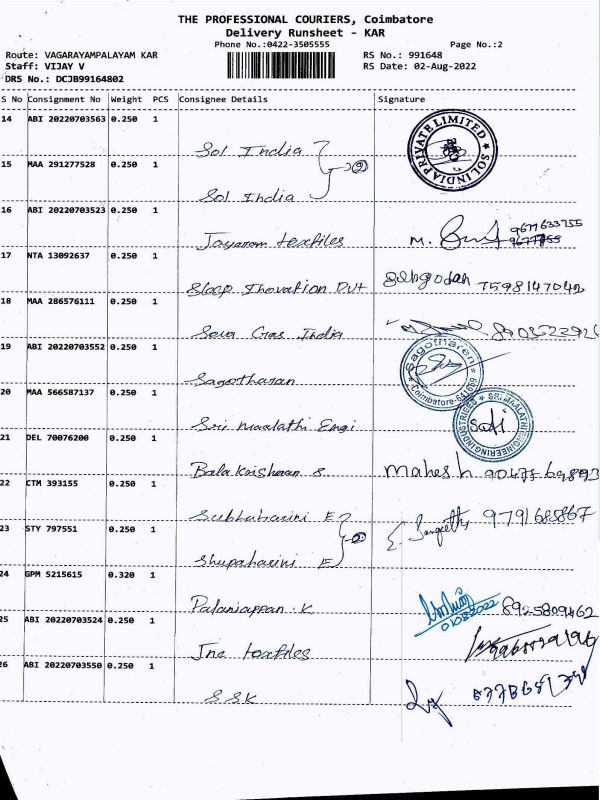 THE PROFESSIONAL COURIERS, Coimbatore
Delivery Runsheet - KAR
Phone No.:0422-3505555 Page No.:2
Route: VAGARAYAMPALAYAM KAR RS No.: 991648
Staff: VIJAY V RS Date: 02-Aug-2022
DRS No.: DCJB99164802
S No Consignment No Weight PCS Consignee Details Signature
14 ABI 20220703563 0.250 1
Sol India PRIVATE LIMITED SOL INDIA
15 MAA 291277528 0.250 1
2
Sol India
16 ABI 20220703523 0.250 1
Jayaram textiles M. 9677633755
17 NTA 13092637 0.250 1
Sloop Inovation Pvt 7598147042
18 MAA 286576111 0.250 1
Seva Gas India
19 ABI 20220703552 0.250 1
Sagotharan Sagotharen Coimbatore
20 MAA 566587137 0.250 1
Sri Maalathi Engi SRI MAALATHI ENGINEERING INDUSTRIES
21 DEL 70076200 0.250 1
Balakrishnan S Mahesh
22 CTM 393155 0.250 1
Subhaharini E Sangeetha 9791685867
23 STY 797551 0.250 1
2
Shupaharini E
24 GPM 5215615 0.320 1
Palaniappan K 8925809462
25 ABI 20220703524 0.250 1
textiles
26 ABI 20220703550 0.250 1
SSK